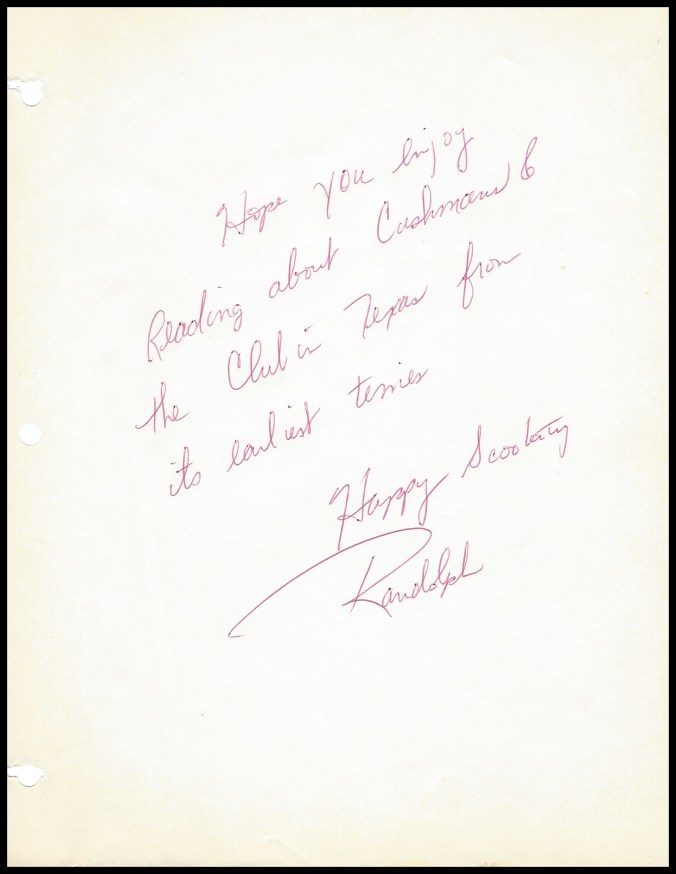 Hope you Enjoy
Reading about Cushmans &
the Club in Texas from
its earliest
Happy Scootering
Randolph